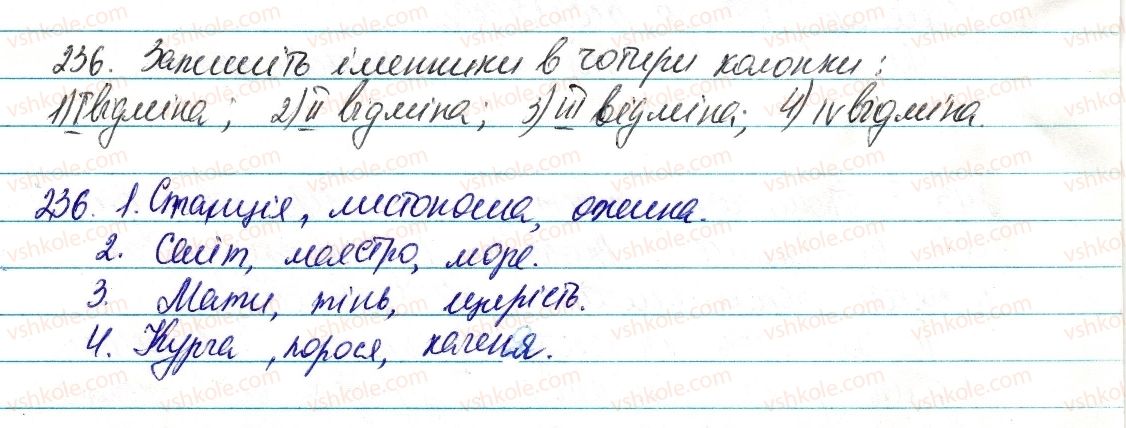 236. Запишіть іменники в чотири колонки:
1) I відміна; 2) II відміна; 3) III відміна; 4) IV відміна.
236. 1. Станція, листоноша, ожина.
2. Світ, маестро, море.
3. Мати, тінь, щирість.
4. Курча, порося, каченя.